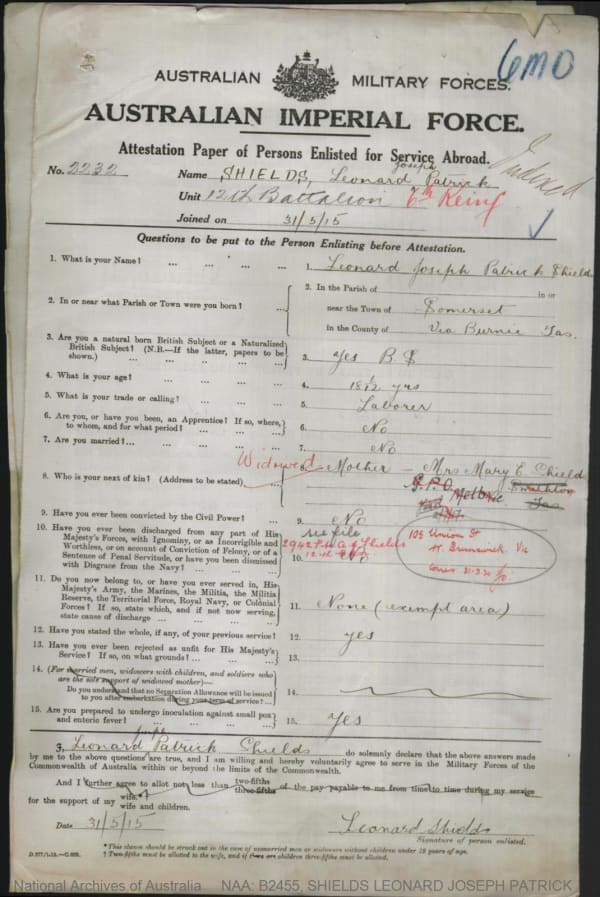 6MD
AUSTRALIAN MILITARY FORCES.
AUSTRALIAN IMPERIAL FORCE.
Attestation Paper of Persons Enlisted for Service Abroad.
Indexed
No. 2232 Name SHIELDS, Leonard Joseph Patrick
Unit 12th Battalion 6th Reinf
Joined on 31/5/15
Questions to be put to the Person Enlisting before Attestation.
1. What is your Name? ... ... ... 1. Leonard Joseph Patrick Shields
2. In or near what Parish or Town were you born? ... 2. In the Parish of in or
near the Town of Somerset
in the County of Via Burnie Tas.
3. Are you a natural born British Subject or a Naturalized
British Subject? (N.B.—If the latter, papers to be
shown.) ... 3. Yes B S
4. What is your age? ... 4. 18 1/2 yrs
5. What is your trade or calling? ... 5. Laborer
6. Are you, or have you been, an Apprentice? If so, where,
to whom, and for what period? ... 6. No
7. Are you married? ... 7. No
Widowed
8. Who is your next of kin? (Address to be stated) 8. Mother - Mrs Mary E. Shields
G.P.O. Melbne
Tas
9. Have you ever been convicted by the Civil Power? ... 9. No
10. Have you ever been discharged from any part of His
Majesty's Forces, with Ignominy, or as Incorrigible and
Worthless, or on account of Conviction of Felony, or of a
Sentence of Penal Servitude, or have you been dismissed
with Disgrace from the Navy? ... 10. No
see file
2942 Pte A J Shields
12th Bn
105 Union St
W. Brunswick Vic
11. Do you now belong to, or have you ever served in, His
Majesty's Army, the Marines, the Militia, the Militia
Reserve, the Territorial Force, Royal Navy, or Colonial
Forces? If so, state which, and if not now serving,
state cause of discharge ... 11. None (exempt area)
12. Have you stated the whole, if any, of your previous service? 12. yes
13. Have you ever been rejected as unfit for His Majesty's
Service? If so, on what grounds? ... 13.
14. (For married men, widowers with children, and soldiers who
are the sole support of widowed mother)—
Do you understand that no Separation Allowance will be issued
to you after embarkation during your term of service? ... 14.
15. Are you prepared to undergo inoculation against small pox
and enteric fever? ... 15. Yes
I, Leonard Joseph Patrick Shields do solemnly declare that the above answers made
by me to the above questions are true, and I am willing and hereby voluntarily agree to serve in the Military Forces of the
Commonwealth of Australia within or beyond the limits of the Commonwealth.
And I further agree to allot not less than two-fifths three-fifths of the pay payable to me from time to time during my service
for the support of my wife. wife and children.
Date 31/5/15 Leonard Shields
Signature of person enlisted.
* This clause should be struck out in the case of unmarried men or widowers without children under 18 years of age.
† Two-fifths must be allotted to the wife, and if there are children three-fifths must be allotted.
National Archives of Australia NAA: B2455, SHIELDS LEONARD JOSEPH PATRICK